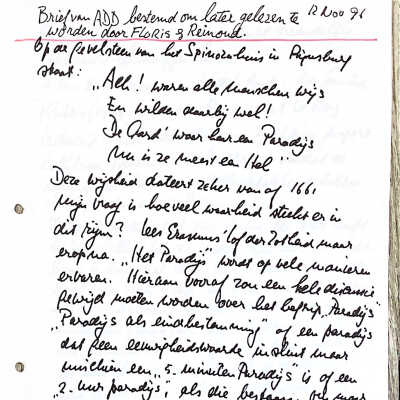 Brief van ADD bestemd om later gelezen te 12 Nov 96
worden door FLORIS & Reinoud.
Op de gevelsteen van het Spinozahuis in Rijnsburg
staat:
"Ach! waren alle menschen wijs
En wilden daarbij wel!
De Aard' waar haar een Paradijs
Nu is ze meest een Hel"
Deze wijsheid dateert zeker vanaf 1661
mijn vraag is hoeveel waarheid steekt er in
dit rijm? Lees Erasmus' lof der Zotheid maar
erop na. "Het Paradijs" wordt op vele manieren
ervaren. Hieraan vooraf zou een hele discussie
gewijd moeten worden over het begrip "Paradijs"
"Paradijs als eindbestemming" of een paradijs
dat geen eeuwigheidswaarde insluit maar
misschien een "5. minuten Paradijs" is of een
"2. uur paradijs", als die bestaan,